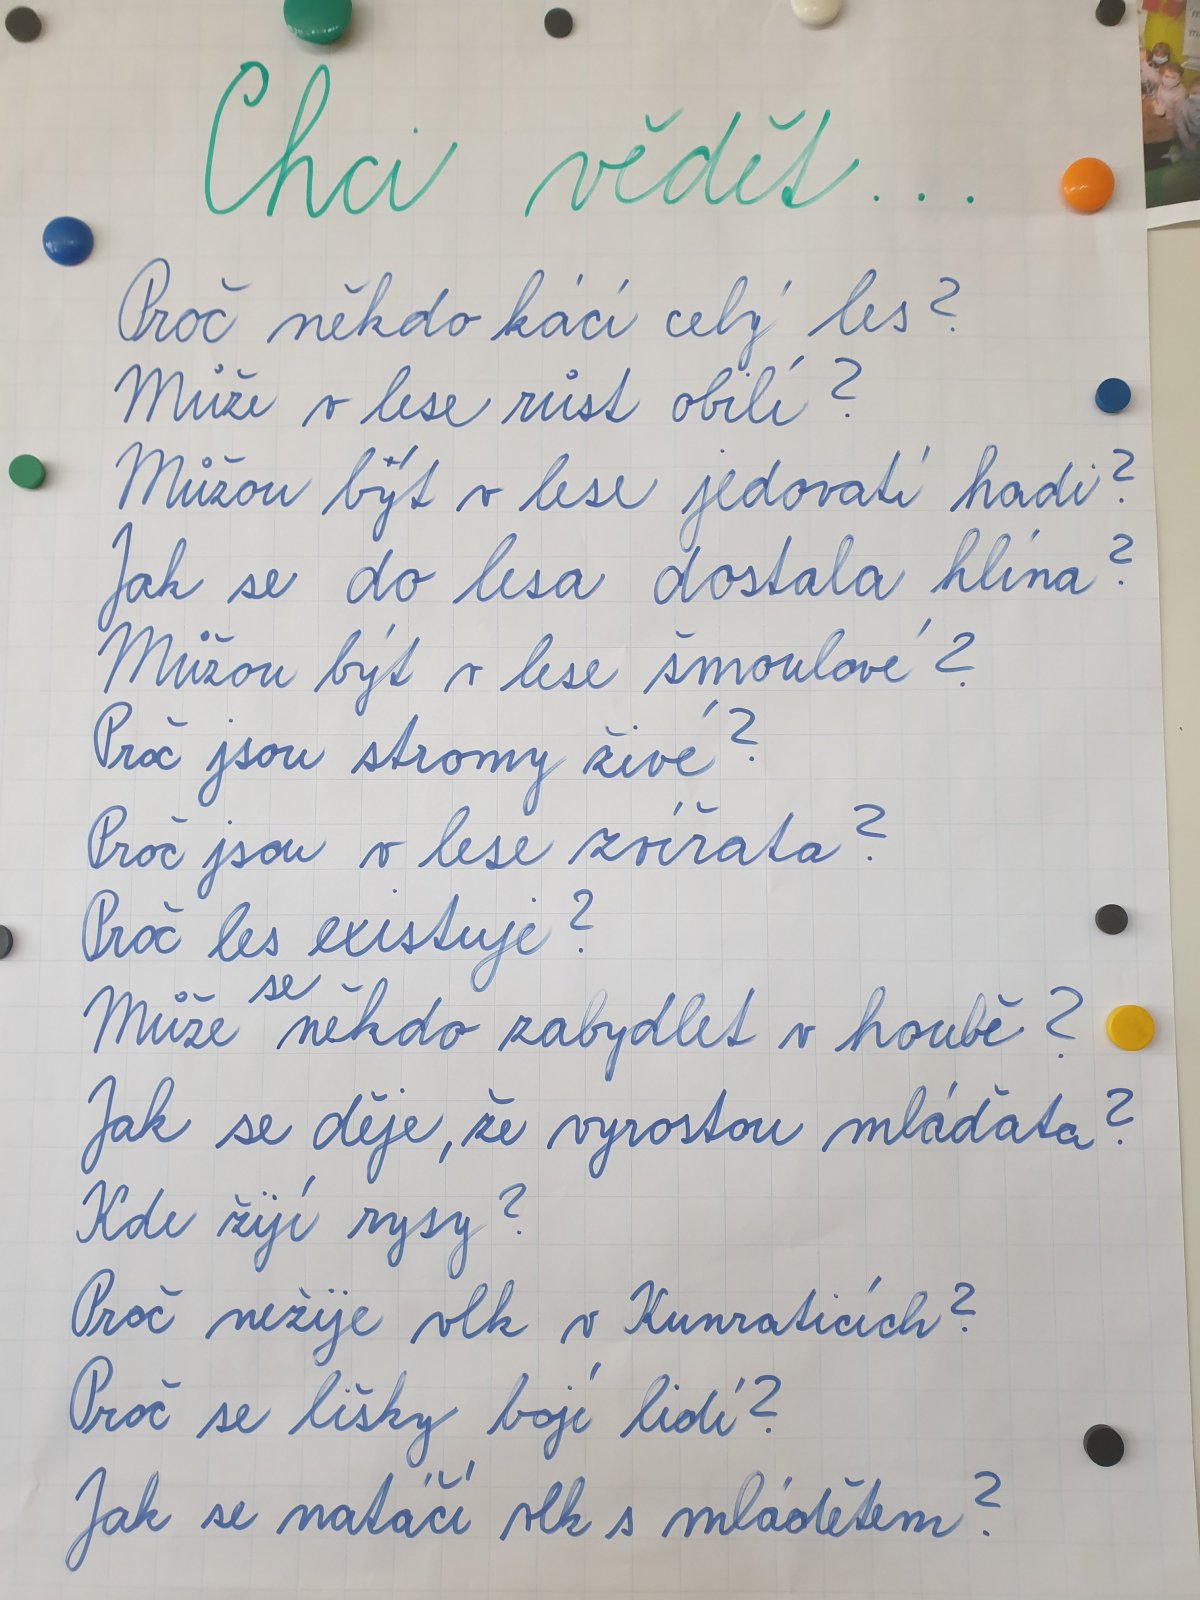 Chci vědět...
Proč někdo kácí celý les?
Může v lese růst obilí?
Můžou být v lese jedovatí hadi?
Jak se do lesa dostala hlína?
Můžou být v lese šmoulové?
Proč jsou stromy živé?
Proč jsou v lese zvířata?
Proč les existuje?
Může se někdo zabydlet v houbě?
Jak se děje, že vyrostou mláďata?
Kde žijí rysy?
Proč nežije vlk v Kunraticích?
Proč se lišky bojí lidí?
Jak se natáčí vlk s mládětem?